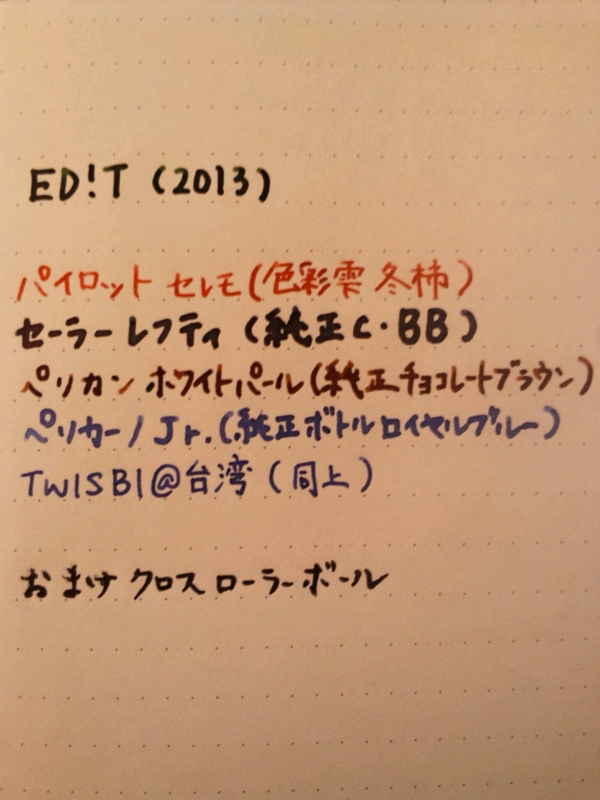 ED!T (2013)
パイロット セレモ(色彩雫 冬柿)
セーラー レフティ (純正 C・BB)
ペリカン ホワイトパール(純正チョコレートブラウン)
ペリカーノ Jr.(純正ボトルロイヤルブルー)
TWISBI@台湾 (同上)
おまけ クロス ローラーボール